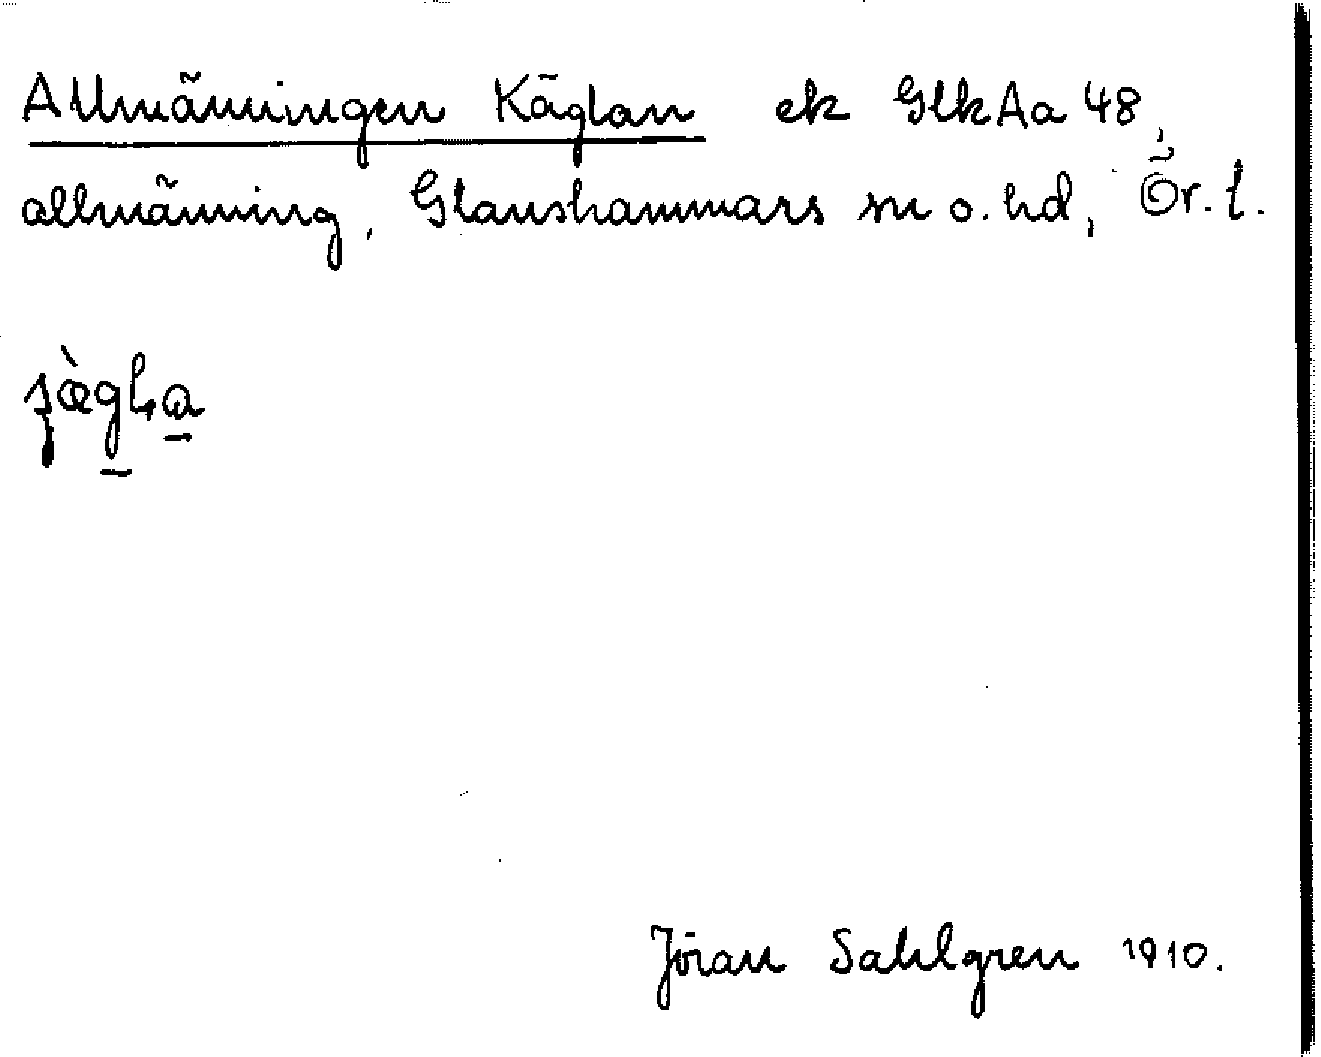 Allmänningen Käglan ek GlkAa 48,
allmänning, Glanshammars sn o. hd, Ör. l.
Jöran Sahlgren 1910.